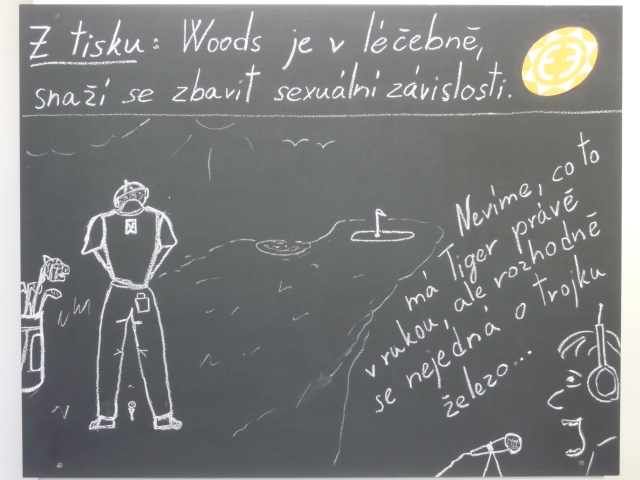 Z tisku: Woods je v léčebně,
snaží se zbavit sexuální závislosti.
Nevíme, co to
má Tiger právě
v rukou, ale rozhodně
se nejedná o trojku
železo...